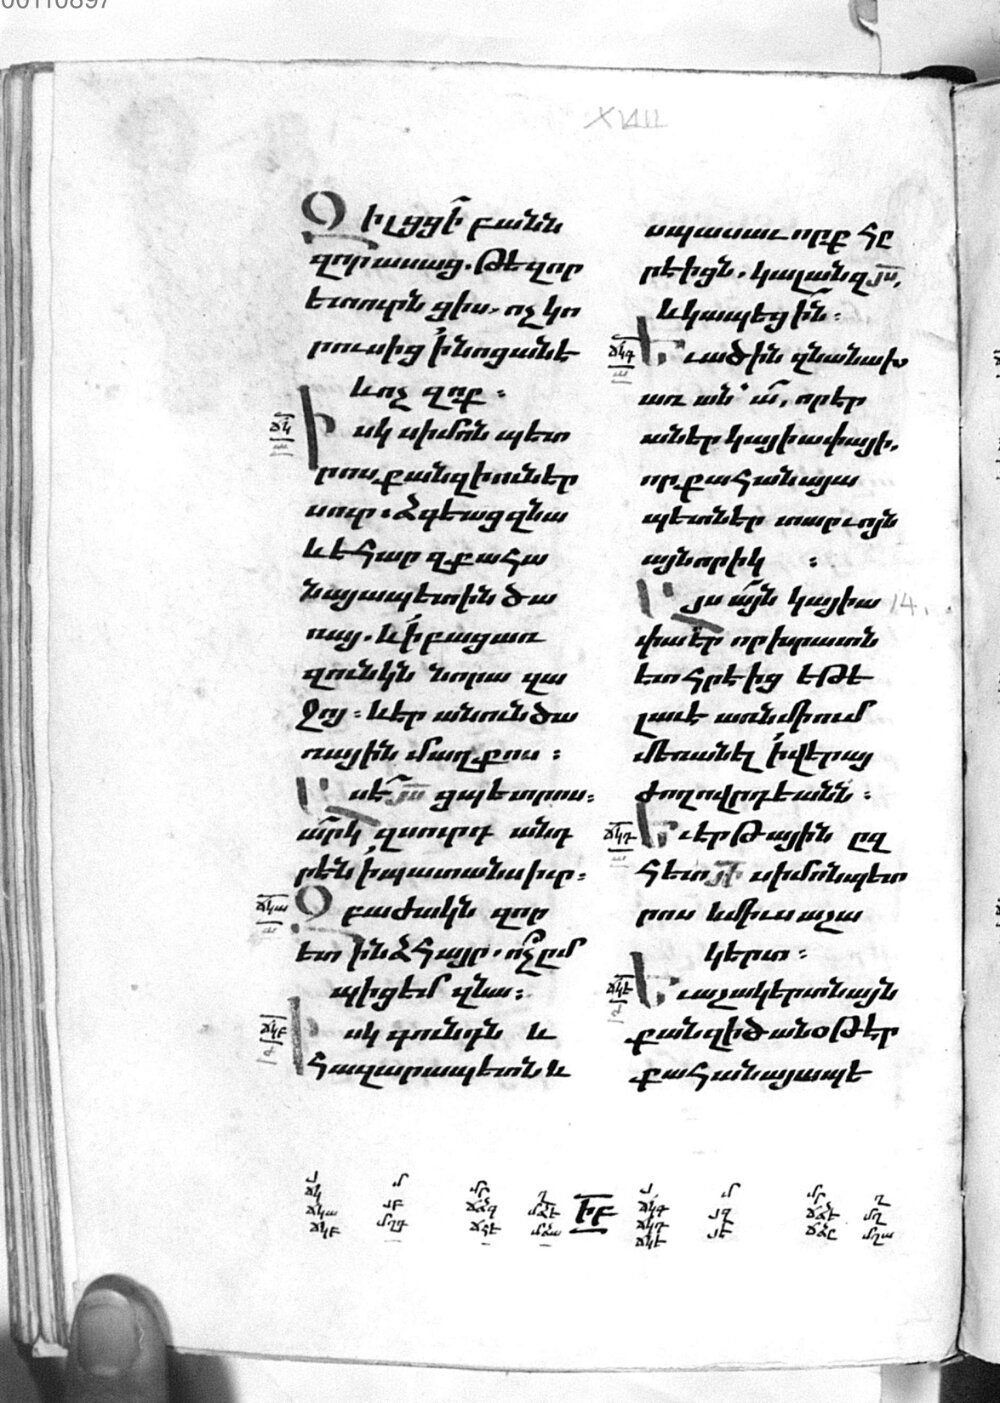 00110897
XVIII
Զի լցցի՛ բանն
զոր ասաց. թե զոր
ետուրն ցիս. ոչ կո
րուսից ի՛նոցանե
և ոչ զոք :
ճկ
Իսկ սիմոն պետ
րոս քանզի ուներ
սուր : ձգեաց զնա
և եհար զքահա
նայապետին ծա
ռայ. և ի՛ բաց առ
զունկն նորա զա
ջոյ : և էր անուն ծա
ռային մաղքոս :
Ասե՛ յս ցպետրոս :
ա՛րկ զսուրդ անդ
րէն ի՛ պատանս իւր :
ճկա
Զբաժակն զոր
ետ ինձ հայր. ո՛չ ըմ
պիցեմ զնա :
ճկբ
Իսկ գունդն և
հազարապետն և
սպասաւորք հը
րէիցն. կալան զյս,
և կապեցի՛ն :
ճկգ
Եւ ածին զնա նախ
առ ան՛ա՛, որ էր
աներ կայիափայի,
որ քահանայա
պետ էր տարւոյն
այնորիկ :
Այս ա՛յն կայիա
14.
փա էր որ խրատն
ետ հրէից եթէ
լաւ է առն միում
մեռանել ի՛ վերայ
ժողովրդեանն :
ճկդ
Եւ երթային ըզ
հետ յի սիմոն պետ
րոս և միւս աշա
կերտ :
ճկե
Եւ աշակերտն այն
քանզի ծանօթ էր
քահանայապե
ԻԲ